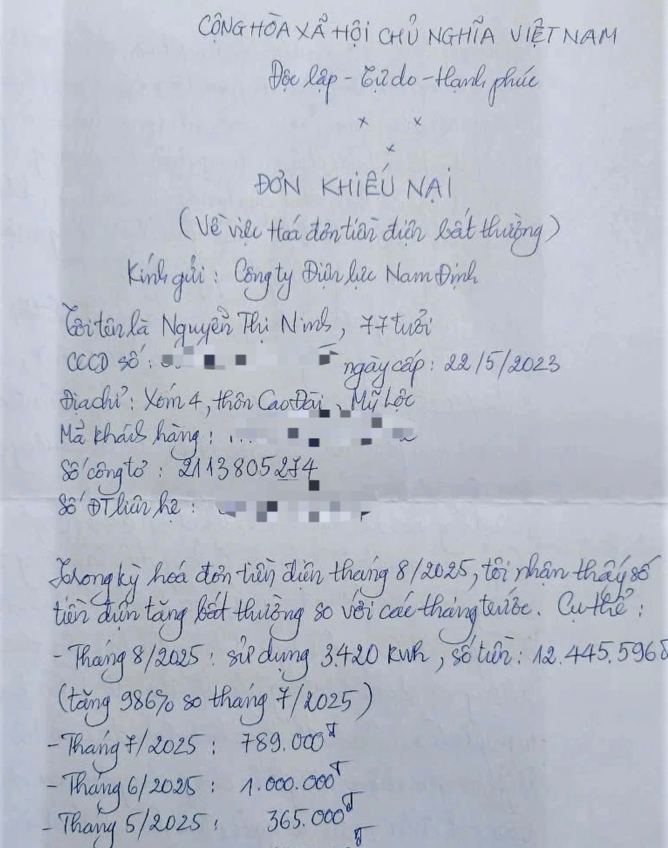 CỘNG HÒA XÃ HỘI CHỦ NGHĨA VIỆT NAM
Độc lập - Tự do - Hạnh phúc
x x
x
ĐƠN KHIẾU NẠI
(Về việc Hoá đơn tiền điện bất thường)
Kính gửi: Công ty Điện lực Nam Định
Tôi tên là Nguyễn Thị Ninh, 77 tuổi
CCCD số: ngày cấp: 22/5/2023
Địa chỉ: Xóm 4, thôn Cao Đài, Mỹ Lộc
Mã khách hàng:
Số công tơ: 2113805274
Số ĐT liên hệ:
Trong kỳ hoá đơn tiền điện tháng 8/2025, tôi nhận thấy số
tiền điện tăng bất thường so với các tháng trước. Cụ thể:
- Tháng 8/2025: sử dụng 3.420 kwh, số tiền: 12.445.596đ
(tăng 986% so tháng 7/2025)
- Tháng 7/2025: 789.000đ
- Tháng 6/2025: 1.000.000đ
- Tháng 5/2025: 365.000đ